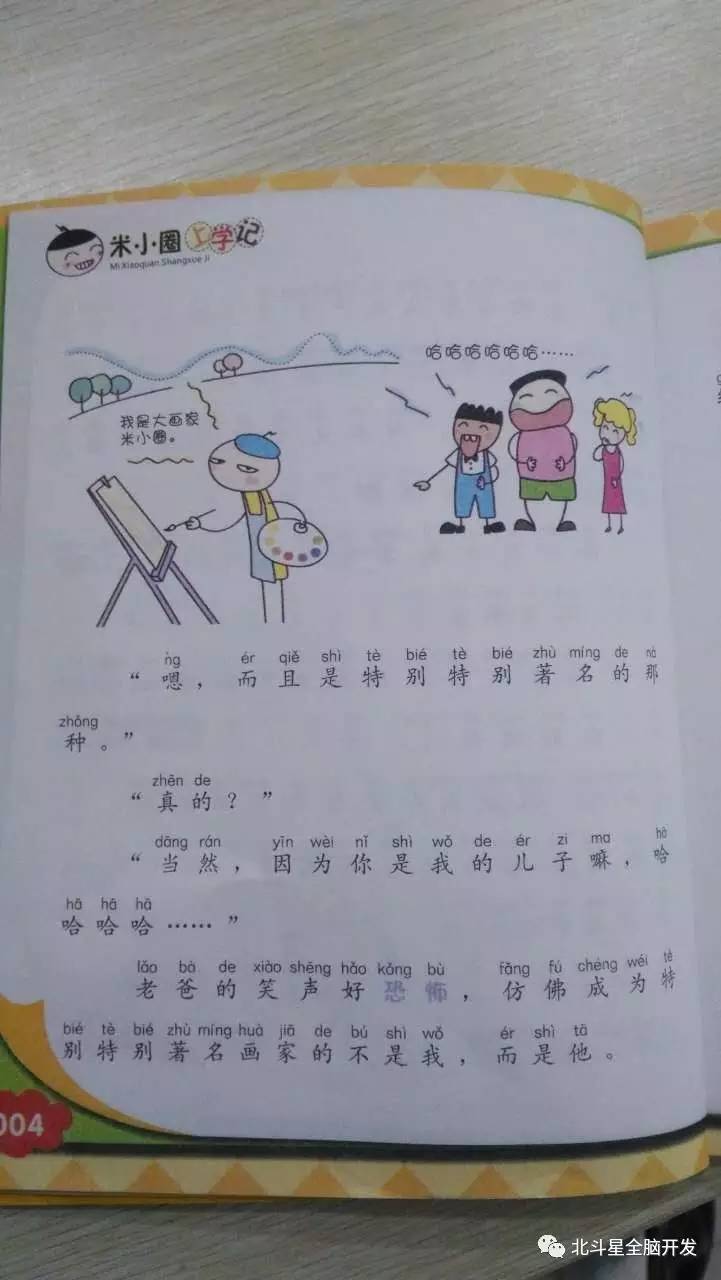 米小圈上学记
Mi Xiaoquan Shangxue Ji
哈哈哈哈哈哈……
我是大画家
米小圈。
ǹg ér qiě shì tè bié tè bié zhù míng de nà
“嗯，而且是特别特别著名的那
zhǒng
种。”
zhēn de
“真的？”
dāng rán yīn wèi nǐ shì wǒ de ér zi ma hā
“当然，因为你是我的儿子嘛，哈
hā hā hā
哈哈哈……”
lǎo bà de xiào shēng hǎo kǒng bù fǎng fú chéng wéi tè
老爸的笑声好恐怖，仿佛成为特
bié tè bié zhù míng huà jiā de bú shì wǒ ér shì tā
别特别著名画家的不是我，而是他。
004
北斗星全脑开发